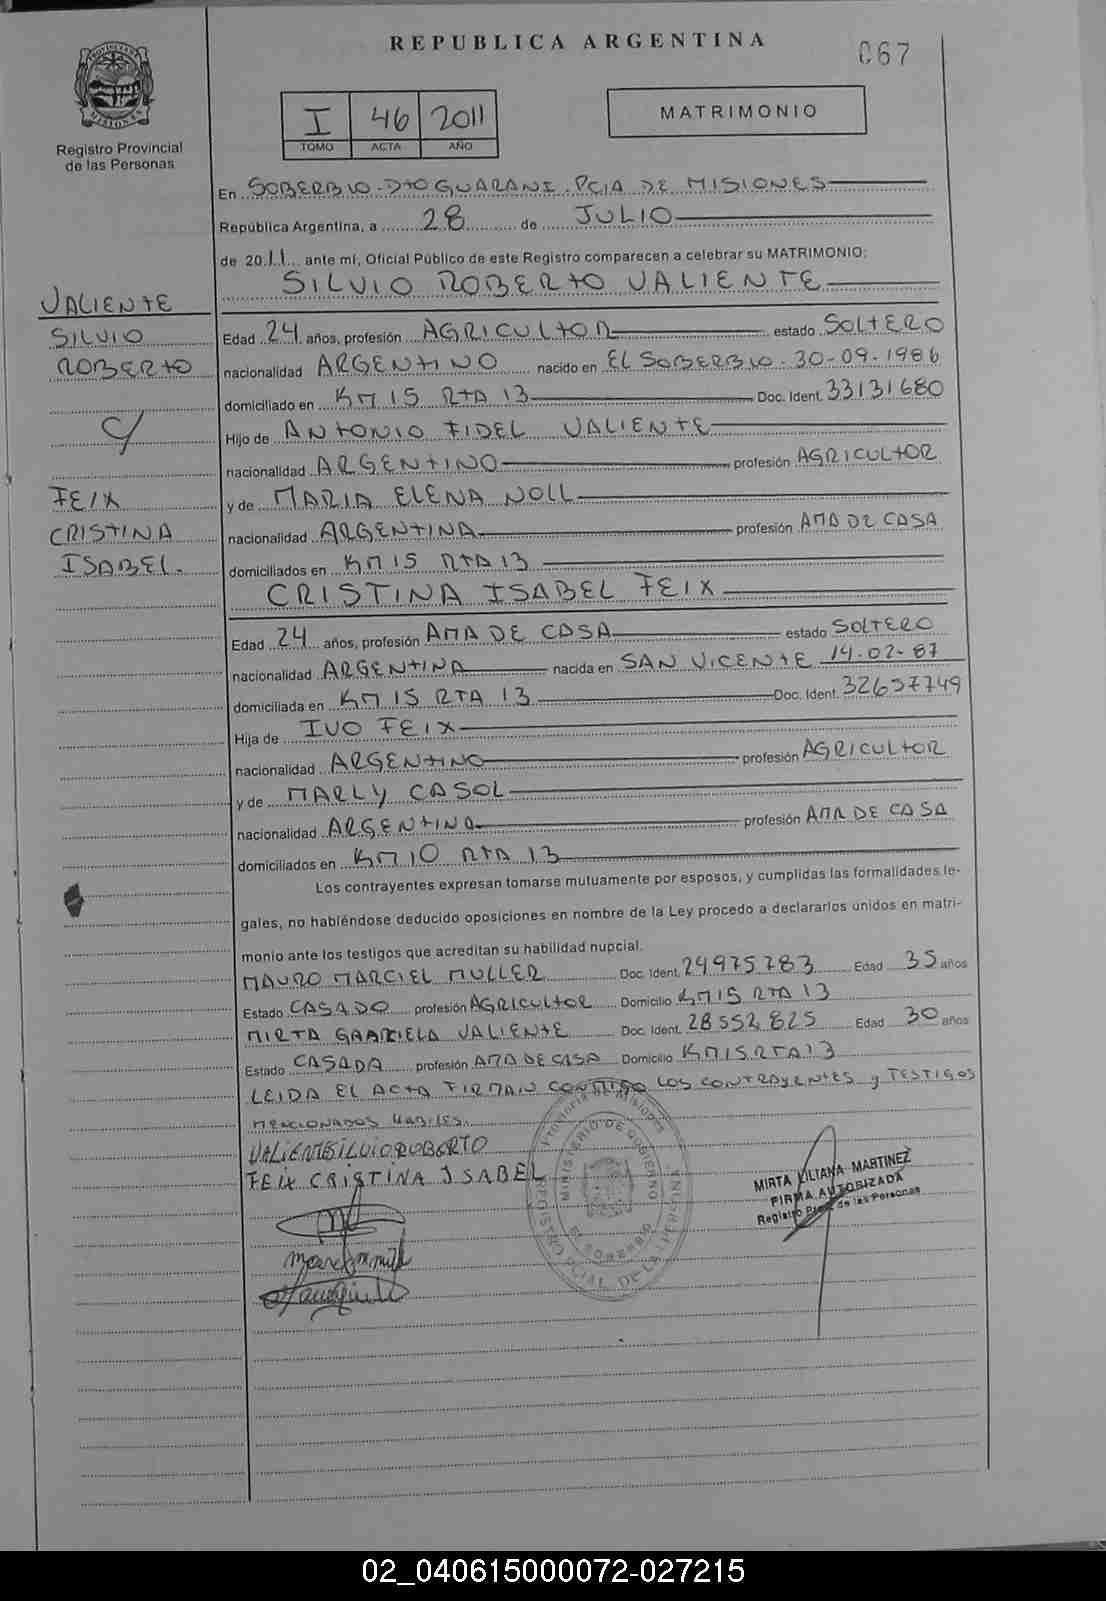 REPUBLICA ARGENTINA
067
PROVINCIA DE MISIONES
Registro Provincial
de las Personas
I 46 2011
TOMO ACTA AÑO
MATRIMONIO
En SOBERBIO-DTO GUARANI. PCIA DE MISIONES
República Argentina, a 28 de JULIO
de 2011 ante mí, Oficial Público de este Registro comparecen a celebrar su MATRIMONIO:
SILVIO ROBERTO VALIENTE
VALIENTE
SILVIO
ROBERTO
C/
FEIX
CRISTINA
ISABEL.
Edad 24 años, profesión AGRICULTOR estado SOLTERO
nacionalidad ARGENTINO nacido en EL SOBERBIO. 30-09-1986
domiciliado en KM 15 RTA 13 Doc. Ident. 33131680
Hijo de ANTONIO FIDEL VALIENTE
nacionalidad ARGENTINO profesión AGRICULTOR
y de MARIA ELENA NOLL
nacionalidad ARGENTINA profesión AMA DE CASA
domiciliados en KM 15 RTA 13
CRISTINA ISABEL FEIX
Edad 24 años, profesión AMA DE CASA estado SOLTERO
nacionalidad ARGENTINA nacida en SAN VICENTE 14-02-87
domiciliada en KM 15 RTA 13 Doc. Ident. 32657749
Hija de IVO FEIX
nacionalidad ARGENTINO profesión AGRICULTOR
y de MARLY CASOL
nacionalidad ARGENTINA profesión AMA DE CASA
domiciliados en KM 10 RTA 13
Los contrayentes expresan tomarse mutuamente por esposos, y cumplidas las formalidades le-
gales, no habiéndose deducido oposiciones en nombre de la Ley procedo a declararlos unidos en matri-
monio ante los testigos que acreditan su habilidad nupcial.
MAURO MARCIEL MULLER Doc. Ident. 24975783 Edad 35 años
Estado CASADO profesión AGRICULTOR Domicilio KM 15 RTA 13
MIRTA GABRIELA VALIENTE Doc. Ident. 28552825 Edad 30 años
Estado CASADA profesión AMA DE CASA Domicilio KM 15 RTA 13
LEIDA EL ACTA FIRMAN CONMIGO LOS CONTRAYENTES y TESTIGOS
MENCIONADOS HABILES.
VALIENTE SILVIO ROBERTO
FEIX CRISTINA ISABEL
MINISTERIO DE GOBIERNO
EL SOBERBIO
MIRTA LILIANA MARTINEZ
FIRMA AUTORIZADA
Registro Prov. de las Personas
02_040615000072-027215